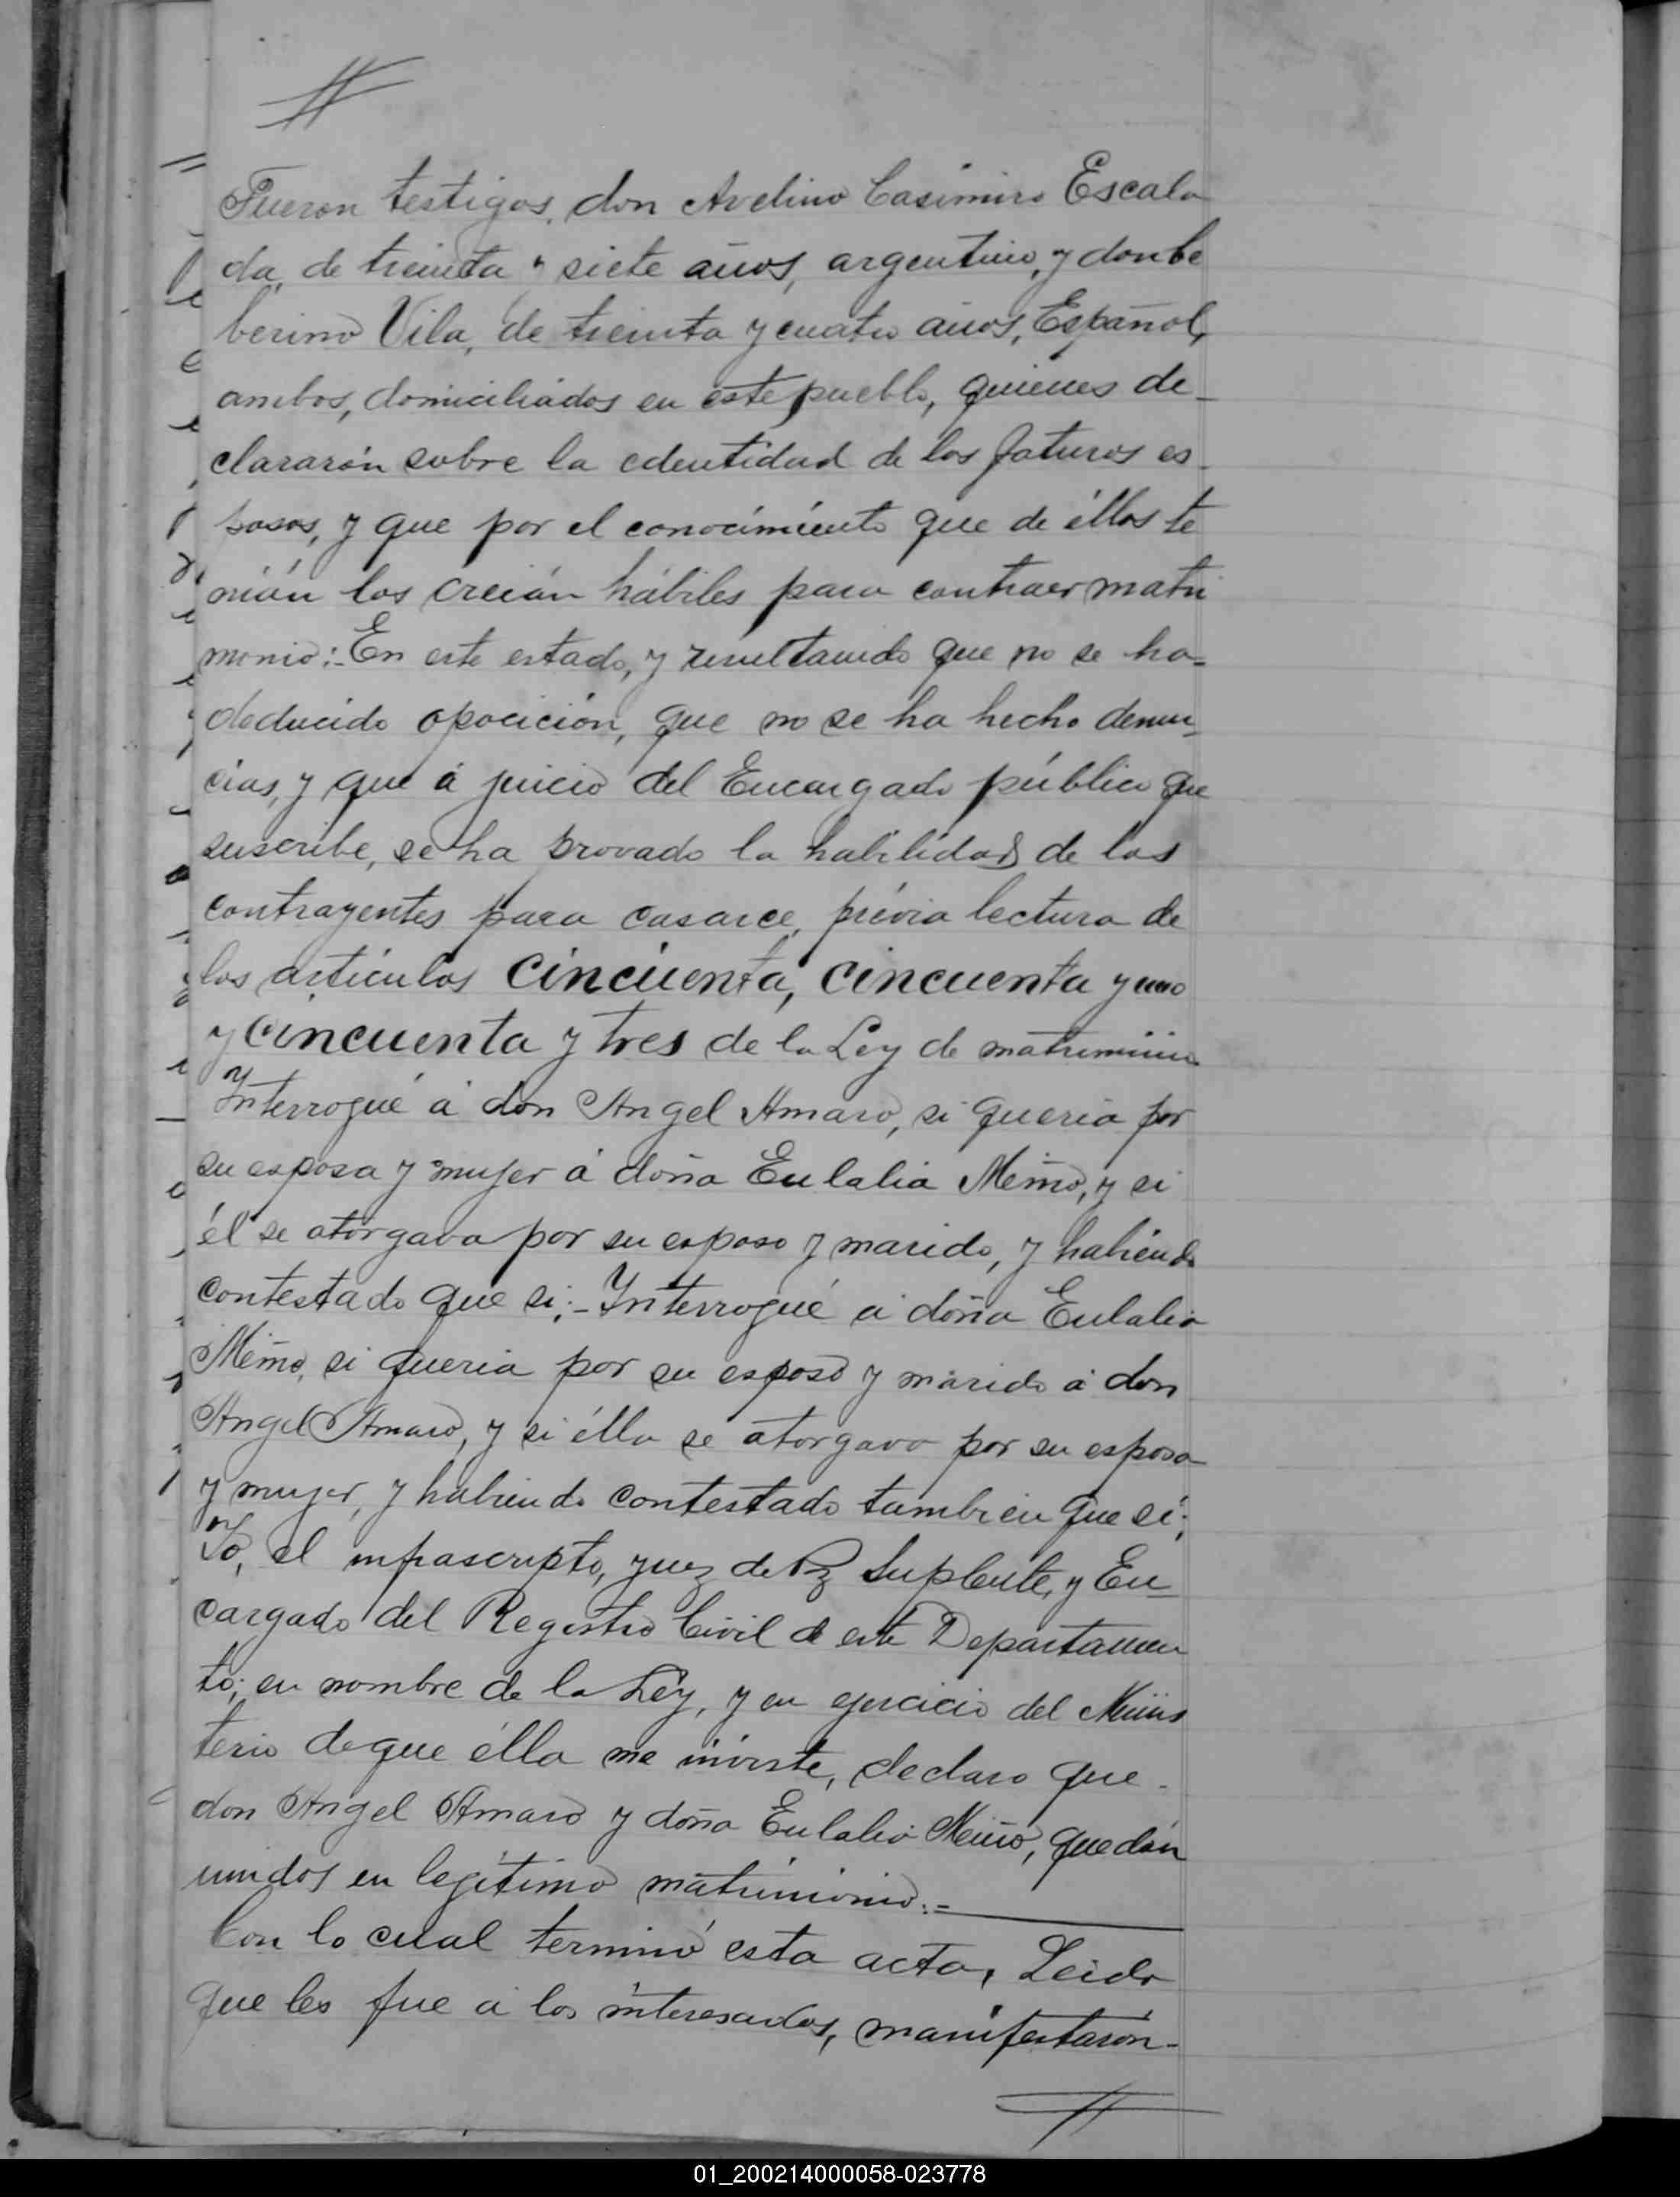 Fueron testigos, don Avelino Casimiro Escala
da, de treinta y siete años, argentino, y don Ce
berino Vila, de treinta y cuatro años, Español,
ambos, domiciliados en este pueblo, quienes de-
clararón sobre la edentidad de los foturos es-
posos, y que por el conocimiento que de éllos te
nián los creián hábiles para contraer matri
monio:- En este estado, y resultando que no se ha-
deducido opocición, que no se ha hecho denun-
cias, y que á juicio del Encargado público que
suscribe, se ha provado la habilidad de los
contrayentes para casarce, prévia lectura de
los artículos cincuenta, cincuenta y uno
y cincuenta y tres de la Ley de matrimonio
Interrogué á don Angel Amaro, si queria por
su esposa y mujer á doña Eulalia Meiño, y si
él se otorgava por su esposo y marido, y habiendo
contestado que si;- Interrogué á doña Eulalia
Meiño, si queria por su esposo y marido á don
Angel Amaro, y si élla se otorgava por su esposa
y mujer, y habiendo contestado tambien que sí;
Yo, el infrascripto, yuez de Pz Suplente, y En-
cargado del Registro Civil de este Departamen
to; en nombre de la Ley, y en ejercicio del Minis
terio de que élla me inviste, declaro que-
don Angel Amaro y doña Eulalia Meiño, quedán
unidos en legítimo matrimonio.=
Con lo cual terminó esta acta, Leida
que les fue á los interesados, manifestarón-
01_200214000058-023778